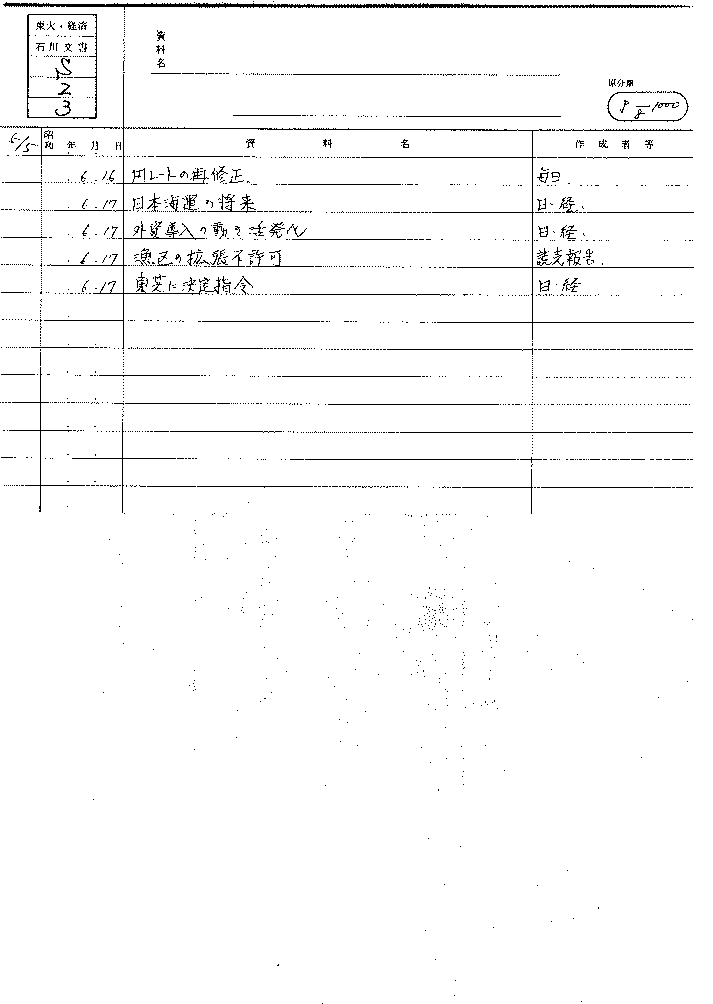 東大・経済
石川文書
2
3
資料名
原分類
8-1000
昭和 年 月 日 資料名 作成者等
6.16 円レートの再修正 毎日
6.17 日本海運の将来 日・経.
6.17 外資導入の動き活発化 日・経.
6.17 漁区の拡張不許可 読売報告.
6.17 東芝に決定指令 日・経